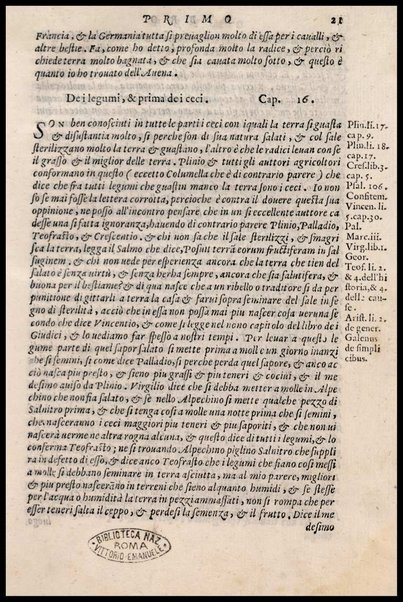 PRIMO 21
Francia, & la Germania tutta si preuagliou molto di essa per i caualli, &
altre bestie. Fa, come ho detto, profonda molto la radice, & perciò ri
chiede terra molto bagnata, & che sia cauata molto sotto, & questo è
quanto io ho trouato dell'Auena.
De i legumi, & prima dei ceci. Cap. 16.
SON ben conosciuti in tutte le parti i ceci con i quali la terra si guasta
& disustantia molto, sì perche son di sua natura salati, & col sale
sterilizzano molto la terra & guastano, l'altro è che le radici leuan con se
il grasso & il miglior delle terra. Plinio & tutti gli autori agricoltori
conformano in questo (eccetto Columella che è di contrario parere) che
dice che fra tutti legumi che guastin manco la terra sono i ceci. Io non
so se mai fosse la lettera corrotta, percioche è contra il douere questa sua
oppinione, ne posso all'incontro pensare che in un sì eccellente auttore ca
desse una sì fatta ignoranza, hauendo di contrario parere Plinio, Palladio,
Teofrasto, & Crescentio. & chi non sa che il sale sterilizzi, & smagri
sca la terra, leggaci il Salmo che dice, Posuit terrā eorum fructiferam in sal
suginem, & chi non uede per esperienza ancora che la terra che tien del
salato è senza virtù, & senza herba sempre, ancora che sia salutifera, &
buona per il bestiame? & di qua nasce che a un ribello o traditore si dà per
punitione di gittarli a terra la casa & farui sopra seminare del sale in se
gno di sterilità, acciò che in essa non possa mai piu nascer cosa ueruna se
condo che dice Vincentio, & come si legge nel nono capitolo del libro dei
Giudici, & lo uediamo far spesso a nostri tempi. Per leuar a questo le
gume parte di quel sapor salato si mette prima a molle un giorno inanzi
che si semini, sì come dice Palladio, sì perche perda quel sapore, & anco ac
ciò nasca piu presto, & sieno piu grassi & piu teneri & cocini, & il me
desimo auiso da Plinio. Virgilio dice che si debba metter a molle in Alpe
chino che non sia salato, & se nello Alpechino si mette qualche pezzo di
Salnitro prima, & che si tenga così a molle una notte prima che si semini,
che nasceranno i ceci maggiori piu teneri & piu saporiti, & che non ui
nascerà uerme ne altra rogna alcuna, & questo dice di tutti i legumi, & lo
conferma Teofrasto; ne si trouando Alpechino piglino Salnitro che suppli
rà in defetto di esso, & dice anco Teofrasto che i legumi che siano così messi
a molle si debbano seminare in terra asciutta, ma al mio parere, migliori
& piu presto nasceranno in terreni che sieno alquanto humidi, & se stesse
per l'acqua o humidità la terra in pezzi ammassati, non si rompa che per
esser teneri salta il ceppo, & perdesi la semenza, & il frutto. Dice il me
desimo
Plin. li. 17.
cap. 9.
Plin. li. 18.
cap. 17.
Cres. lib. 3.
cap. 5.
Psal. 106.
Confitem.
Vincen. li.
5. cap. 30.
Pal.
Marc. iii.
Virg. lib. 1.
Geor.
Teof. li. 2.
& 4. dell'hi
storia, & 4.
dell. cau-
se.
Arist. li. 2.
de gener.
Galenus
de simpli
cibus.
BIBLIOTECA NAZ.
ROMA
VITTORIO EMANUELE